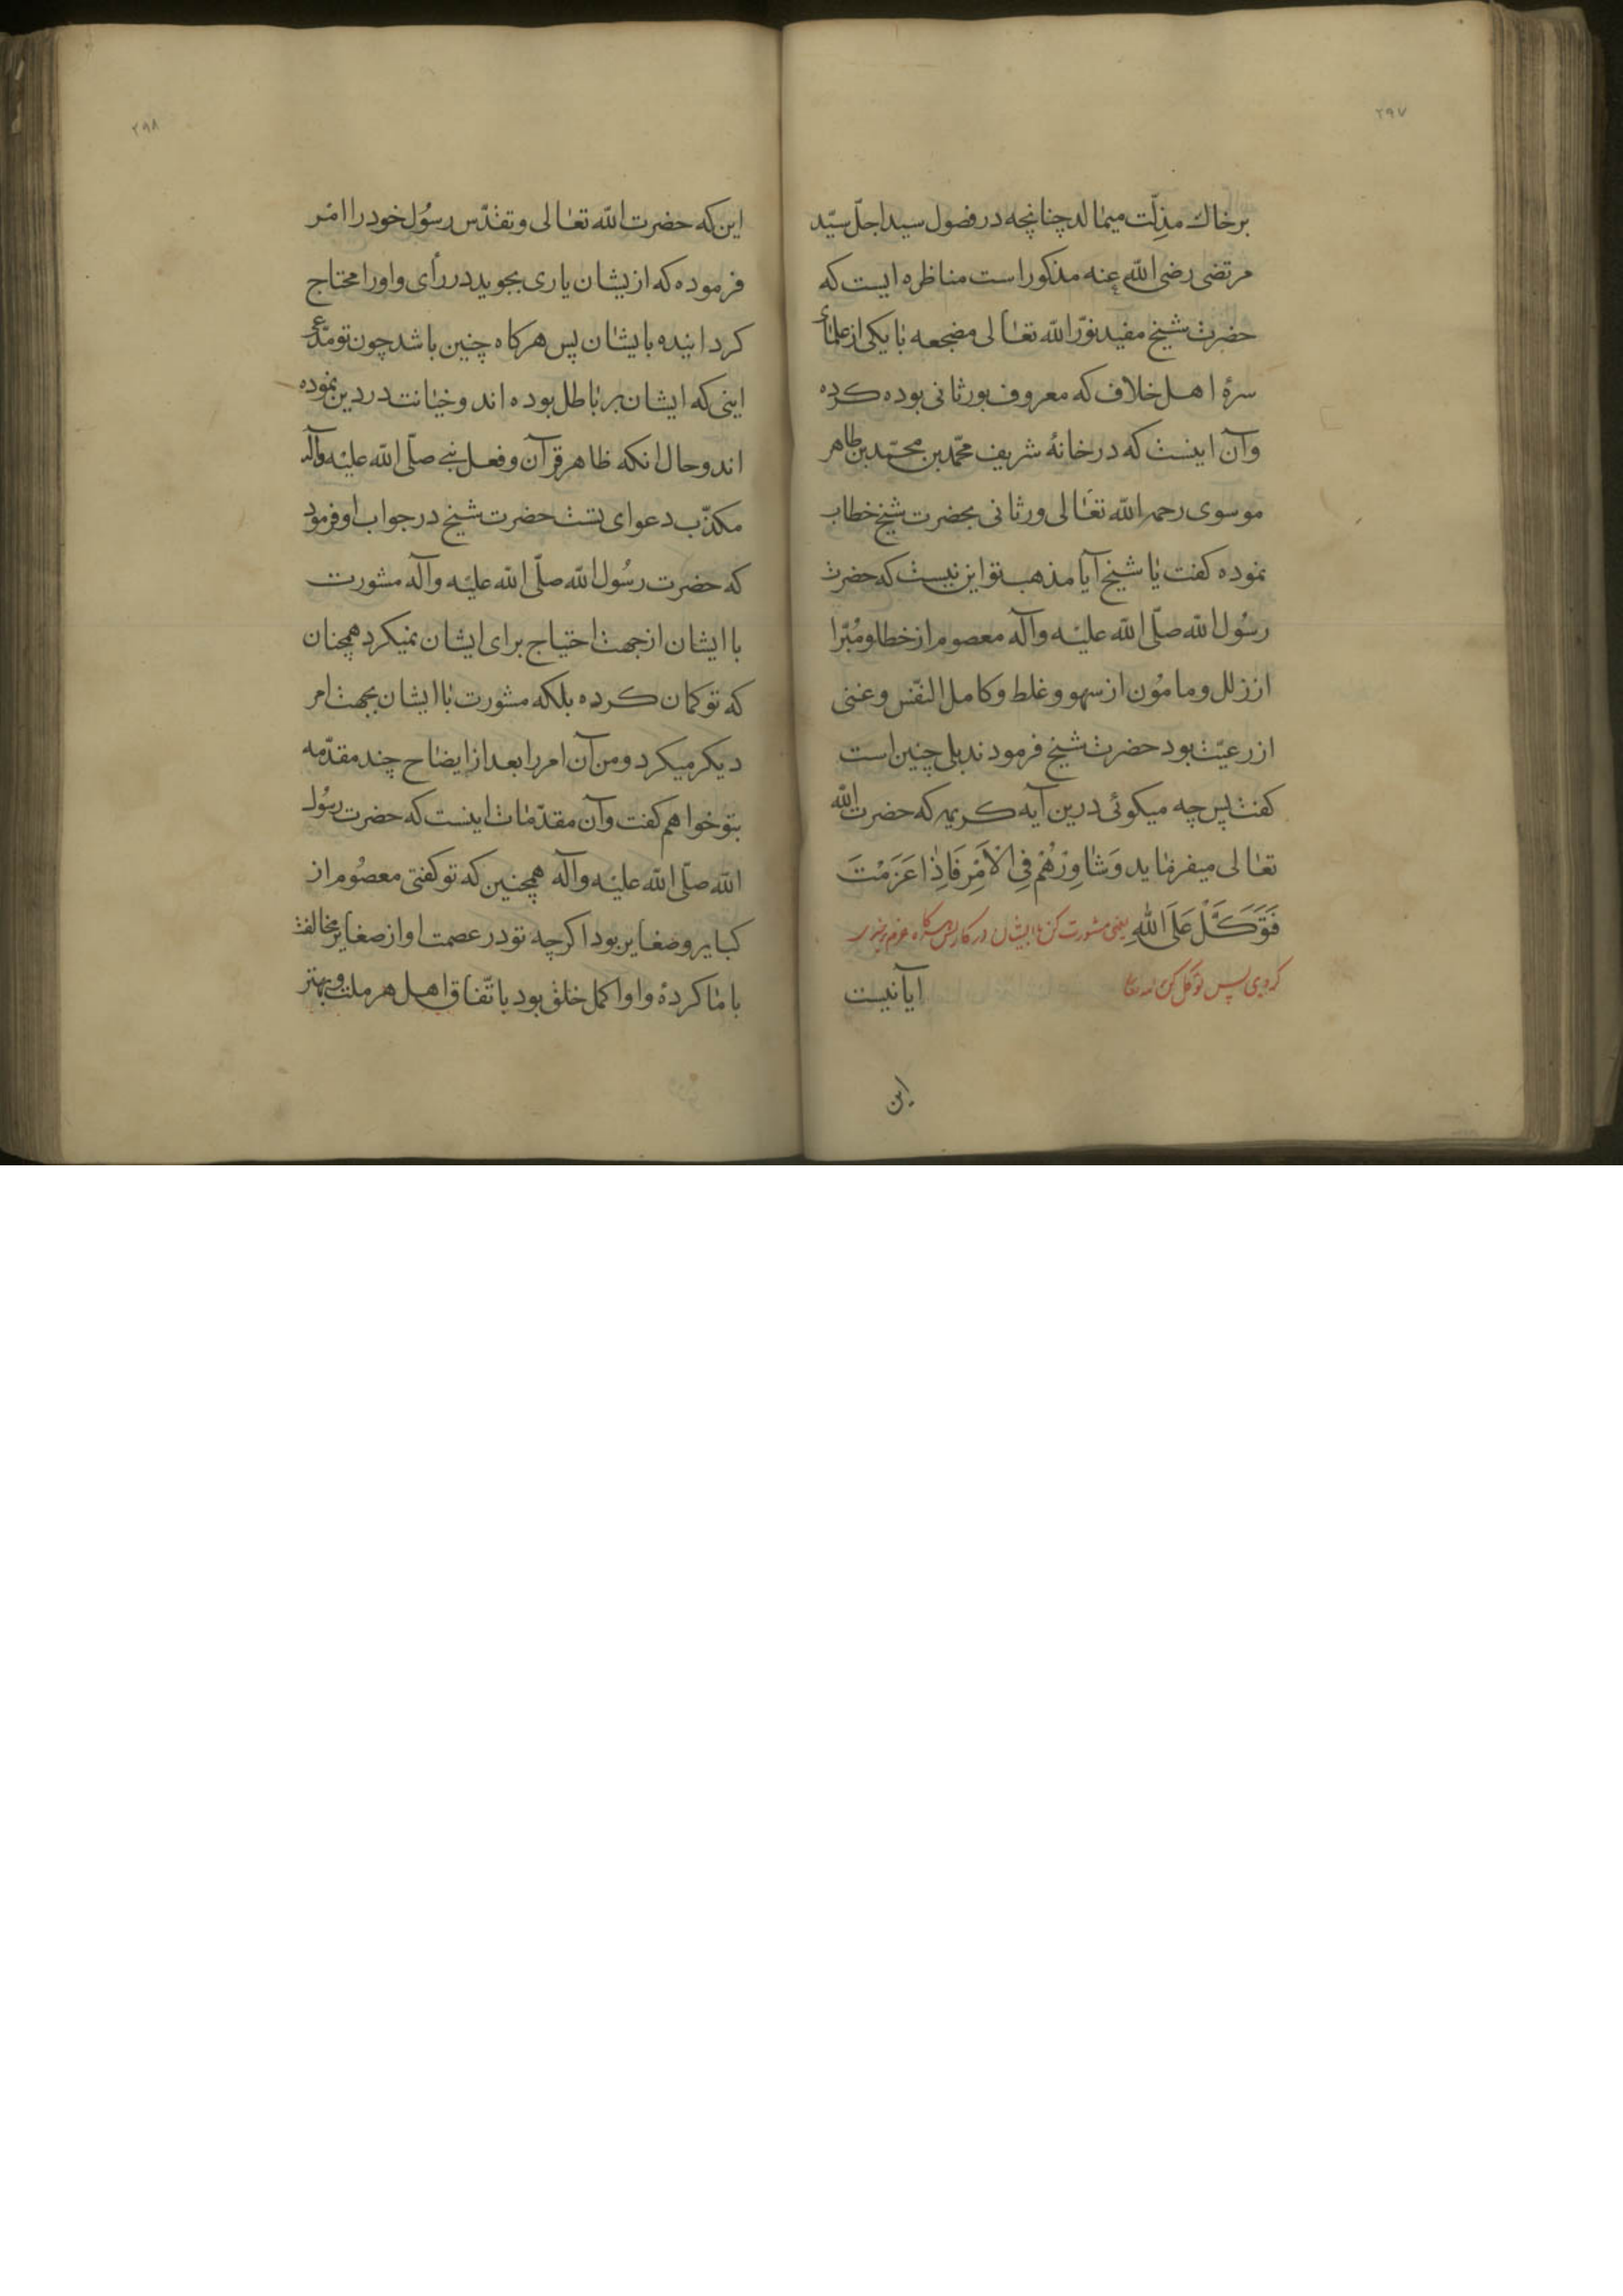 ۲۹۷
برخاك مذلّت میمالد چنانچه در فصول سید اجلّ سیّد
مرتضی رضی الله عنه مذکور است مناظره ایست که
حضرت شیخ مفید نوّر الله تعالی مضجعه با یکی از علمای
سرهٔ اهل خلاف که معروف بورثانی بوده کرده
وآن اینست که در خانهٔ شریف محمّد بن محمّد بن طاهر
موسوی رحمه الله تعالی ورثانی بحضرت شیخ خطاب
نموده کفت یا شیخ آیا مذهب تو این نیست که حضرت
رسُول الله صلّی الله علیه وآله معصوم از خطا ومُبّرا
از زلل ومامُون از سهو وغلط وکامل النّفس وغنی
از رعیّت بود حضرت شیخ فرمودند بلی چنین است
کفت پس چه میکوئی درین آیه کریمه که حضرت الله
تعالی میفرماید وَشَاوِرْهُمْ فِی الْاَمْرِ فَاِذَا عَزَمْتَ
فَتَوَکَّلْ عَلَی اللّٰهِ یعنی مشورت کن با ایشان در کار پس هرکاه عزم چیزی
کردی پس توکّل کن آیا نیست
این
۲۹۸
این که حضرت الله تعالی وتقدّس رسُول خود را امر
فرموده که ازیشان یاری بجوید در رأی واو را محتاج
کردانیده بایشان پس هرکاه چنین باشد چون تو مدّعی
اینی که ایشان بر باطل بوده اند وخیانت در دین نموده
اند وحال انکه ظاهر قرآن وفعل نبی صلّی الله علیه وآله
مکذّب دعوای تست حضرت شیخ در جواب او فرمود
که حضرت رسُول الله صلّی الله علیه وآله مشورت
با ایشان از جهت احتیاج برای ایشان نمیکرد همچنان
که تو کمان کرده بلکه مشورت با ایشان بجهت امر
دیکر میکرد ومن آن امر را بعد از ایضاح چند مقدّمه
بتو خواهم کفت وآن مقدّمات اینست که حضرت رسُول
الله صلّی الله علیه وآله همچنین که تو کفتی معصُوم از
کبایر وصغایر بود اکرچه تو در عصمت او از صغایر مخالفت
با ما کردهٔ واو اکمل خلق بود باتّفاق اهل هر ملت وبهتر